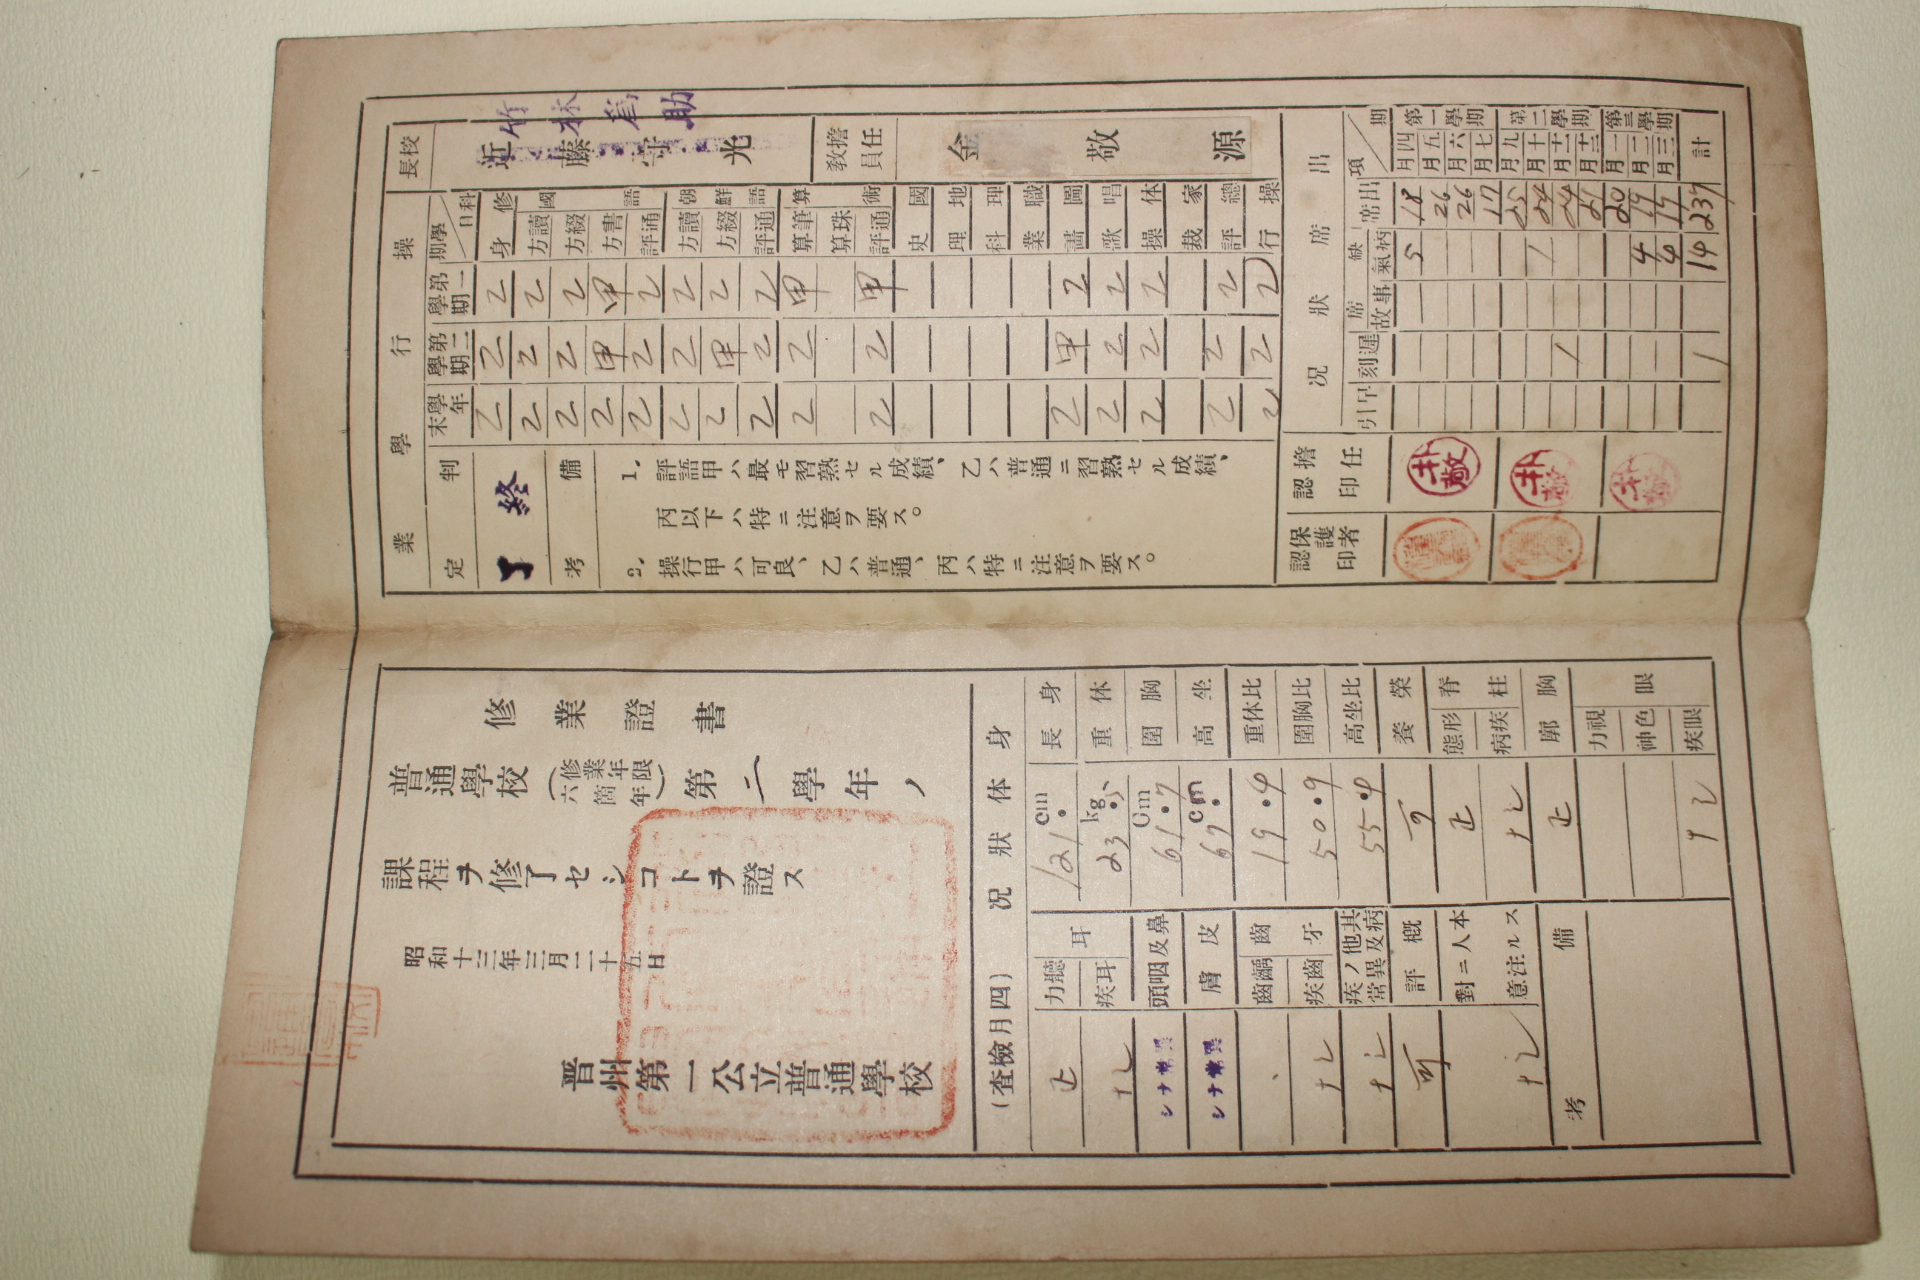 校長 近藤守光
竹林為助
教員擔任 金敬源
操行學業
科目 學期
第一學期
第二學期
學年末
修身 乙 乙 乙
國語
讀方 乙 乙 乙
綴方 乙 乙 乙
書方 甲 甲 乙
通評 乙 乙 乙
朝鮮語
讀方 乙 乙 乙
綴方 乙 甲 乙
通評 乙 乙 乙
算術
筆算 甲 乙 乙
珠算
通評 甲 乙 乙
國史
地理
理科
職業
圖畵 乙 甲 乙
唱歌 乙 乙 乙
体操 乙 乙 乙
家裁
總評 乙 乙 乙
操行 乙 乙 乙
判定
終了
備考
1. 評語甲ハ最モ習熟セル成績、乙ハ普通ニ習熟セル成績、
丙以下ハ特ニ注意ヲ要ス。
2. 操行甲ハ可良、乙ハ普通、丙ハ特ニ注意ヲ要ス。
出席狀況
期 項
出席 缺席 病氣 事故 遲刻 早引
擔任認印
保護者認印
第一學期
四月 18 5
五月 26
六月 26
七月 17
第二學期
九月 25
十月 24 1
十一月 24 1
十二月 21
第三學期
一月 20
二月 19 4
三月 17 4
計 237 14 1
朴敬
朴敬
朴敬
修業證書
普通學校(修業年限六箇年)第二學年ノ
課程ヲ修了セシコトヲ證ス
昭和十三年三月二十五日
晋州第一公立普通學校
身体狀况(四月檢査)
身長 121.cm
体重 23.5kg
胸圍 61.7Cm
坐高 67.cm
比体重 19.4
比胸圍 50.9
比坐高 55.4
榮養 可
脊柱
形態 正
疾病 ナシ
胸廓 正
眼
視力
色神
眼疾 ナシ
耳
聽力 正
耳疾 ナシ
鼻及咽頭 異常ナシ
皮膚 異常ナシ
齒牙
齲齒
齒疾 ナシ
其他ノ疾病及異常 ナシ
概評 可
本人ニ對スル注意 ナシ
備考